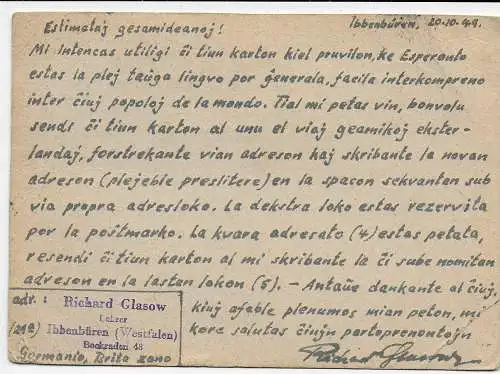 Ibbenbüren, 20.10.49.
Estimataj gesamideanoj!
Mi intencas utiligi ĉi tiun karton kiel pruvilon, ke Esperanto
estas la plej taŭga lingvo por ĝenerala, facila interkompreno
inter ĉiuj popoloj de la mondo. Tial mi petas vin, bonvolu
sendi ĉi tiun karton al unu el viaj geamikoj ekster-
landaj, forstrekante vian adreson kaj skribante la novan
adreson (plejeble preslitere) en la spacon sekvantan sub
via propra adresloko. La dekstra loko estas rezervita
por la poŝtmarko. La kvara adresato (4) estas petata,
resendi ĉi tiun karton al mi skribante la ĉi sube nomitan
adreson en la lastan lokon (5). – Antaŭe dankante al ĉiuj,
kiuj afable plenumos mian peton, mi
kore salutas ĉiujn partoprenontojn
adr.: Richard Glasow
Lehrer
(21a) Ibbenbüren (Westfalen)
Bockraden 48
Germanio, Brita zono
Richard Glasow